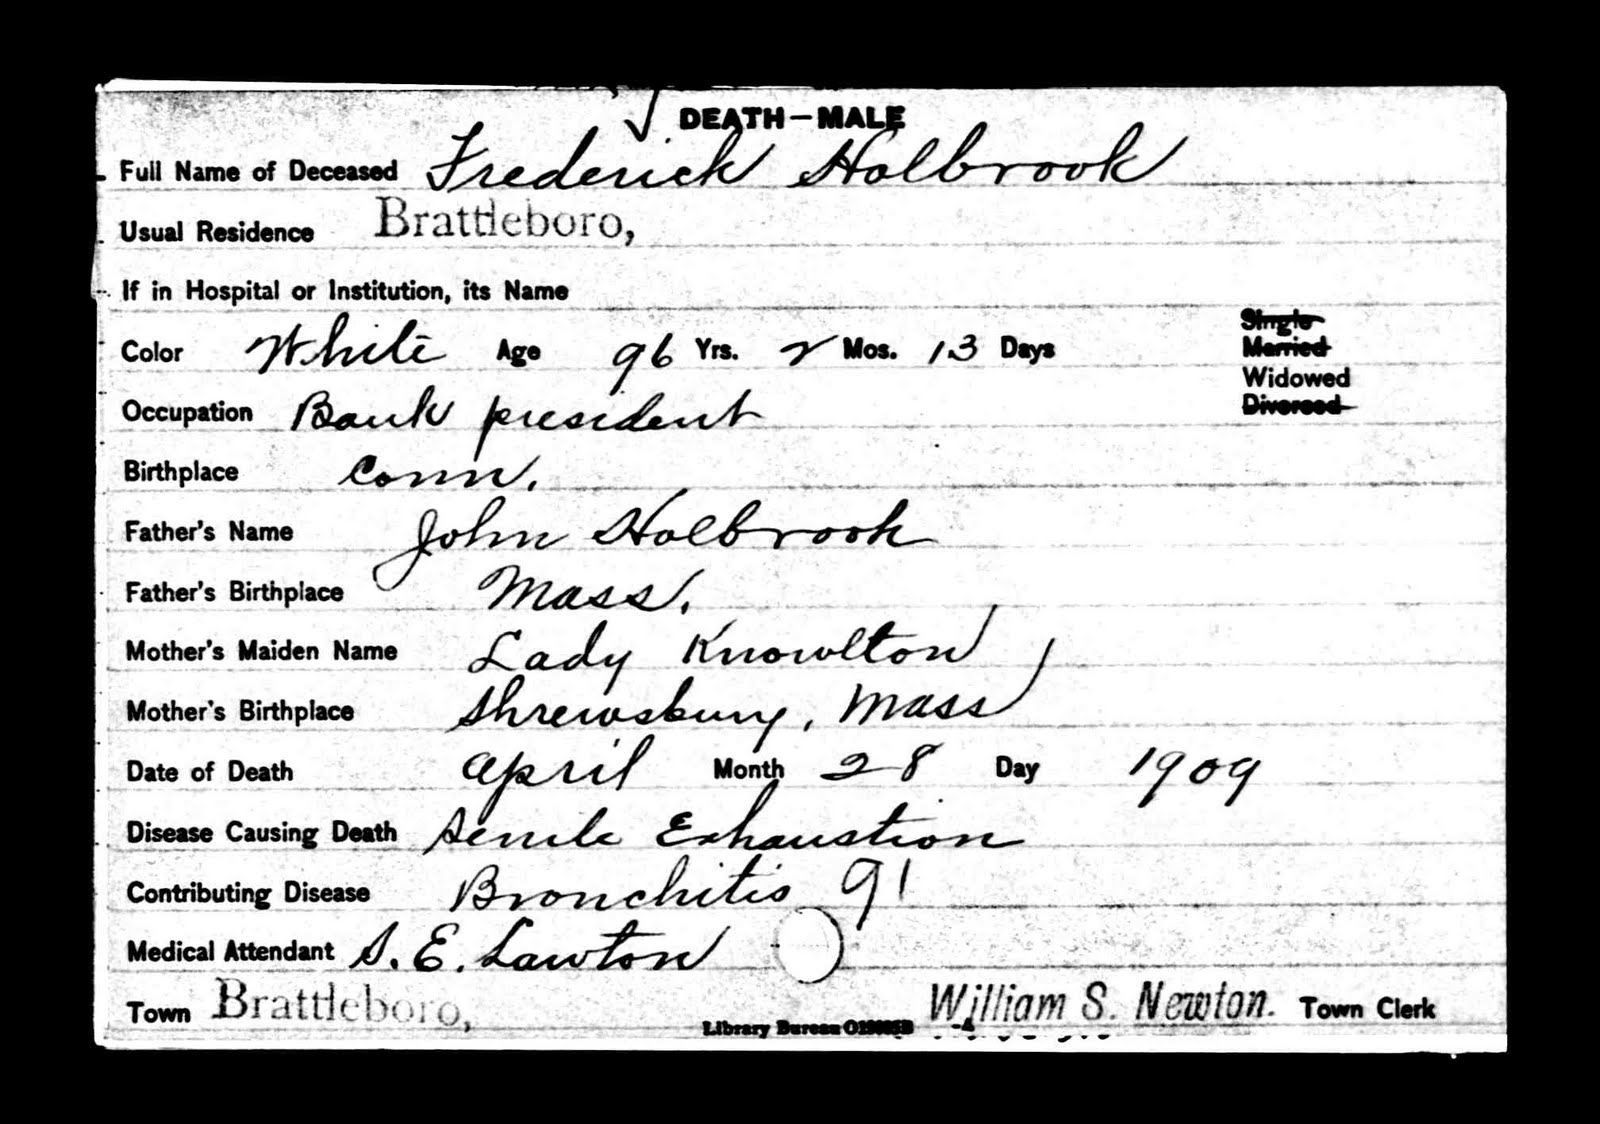 DEATH—MALE
Full Name of Deceased Frederick Holbrook
Usual Residence Brattleboro,
If in Hospital or Institution, its Name
Single
Color White Age 96 Yrs. 2 Mos. 13 Days Married
Widowed
Occupation Bank president Divorced
Birthplace Conn.
Father's Name John Holbrook
Father's Birthplace Mass.
Mother's Maiden Name Lady Knowlton
Mother's Birthplace Shrewsbury, Mass
Date of Death April Month 28 Day 1909
Disease Causing Death Senile Exhaustion
Contributing Disease Bronchitis 91
Medical Attendant S. E. Lawton
Town Brattleboro, William S. Newton. Town Clerk
Library Bureau